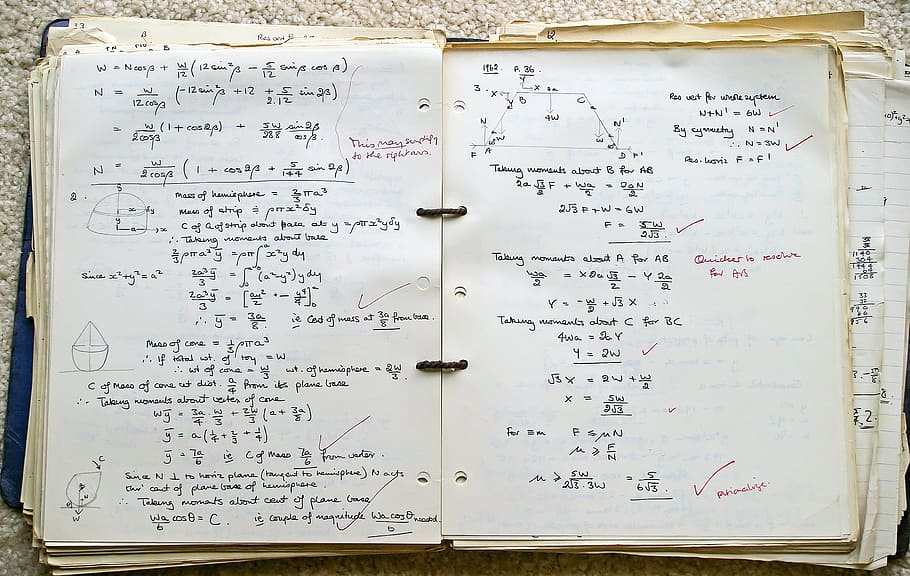 13
W = N cos β + W/12 (12 sin² β − 5/12 sin β cos β)
N = W/12cosβ (−12 sin² β + 12 + 5/2.12 sin 2β)
= W/2cosβ (1 + cos 2β) + 5W/288 sin 2β/cos β.
This may simplify
to the right ans.
N = W/2cosβ (1 + cos 2β + 5/144 sin 2β)
2.
Mass of hemisphere = 2/3 πa³
Mass of strip = ρπx²δy
C of G of strip about base at y = ρπx²yδy
∴ Taking moments about base
2/3 ρπa³ȳ = ρπ∫x²y dy
Since x²+y² = a²
2a³ȳ/3 = ∫(a²−y²)y dy
∴ ȳ = 3a/8. ie Cent of mass at 3a/8 from base.
Mass of cone = 1/3 ρπa³
∴ If total wt. of toy = W
∴ wt of cone = W/3 wt. of hemisphere = 2W/3.
C of Mass of cone at dist. a/4 from its plane base
∴ Taking moments about vertex of cone
Wȳ = 3a/4 . W/3 + 2W/3 (a + 3a/8)
ȳ = a(1/4 + 2/3 + 1/4)
ȳ = 7a/6 ie C of Mass 7a/6 from vertex.
C
W
Since N ⊥ to horiz plane (tangent to hemisphere) N acts
thro' cent of plane base of hemisphere.
∴ Taking moments about cent of plane base
Wa/6 cos θ = C. ie couple of magnitude Wa cos θ/6 needed.
12.
1962. P.36.
3.
Y
X 2a
X B C
Y 4W
N N'
W W
F A D F'
Res vert for whole system
N+N' = 6W
By symmetry N = N'
∴ N = 3W
Res. horiz F = F'
Taking moments about B for AB
2a √3/2 F + Wa/2 = 2aN/2
2√3 F + W = 6W
F = 5W/2√3.
Taking moments about A for AB
Quicker to resolve
for AB
Wa/2 = X 2a √3/2 − Y 2a/2
Y = −W/2 + √3 X
Taking moments about C for BC
4Wa = 2aY
Y = 2W
√3 X = 2W + W/2
X = 5W/2√3
For ≡m F ≤ μN
μ ≥ F/N
μ ≥ 5W/2√3.3W = 5/6√3.
rationalize.